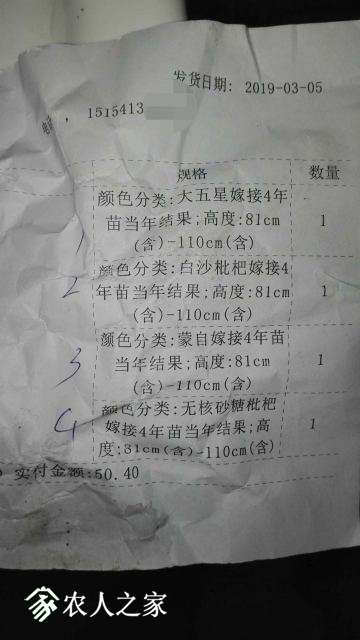 发货日期: 2019-03-05
电话, 1515413
规格 数量
颜色分类:大五星嫁接4年
苗当年结果;高度:81cm 1
1 (含)-110cm(含)
颜色分类:白沙枇杷嫁接4
2 年苗当年结果;高度:81cm 1
(含)-110cm(含)
颜色分类:蒙自嫁接4年苗
3 当年结果;高度:81cm 1
(含)-110cm(含)
4 颜色分类:无核砂糖枇杷
嫁接4年苗当年结果;高 1
度:81cm(含)-110cm(含)
实付金额:50.40
农人之家